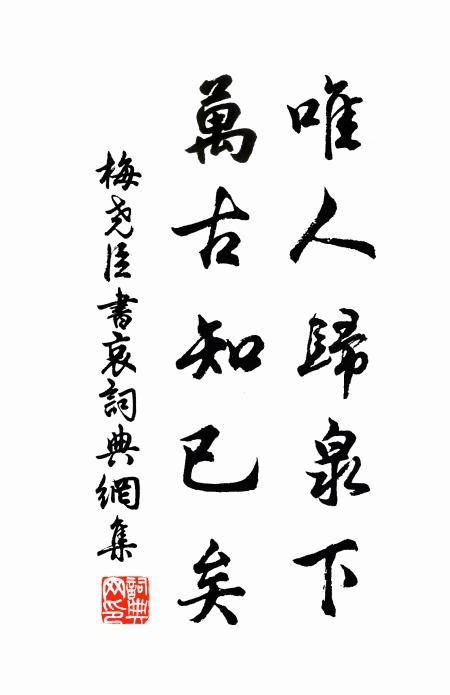 唯人歸泉下
萬古知已矣
梅堯臣書哀詞典網集
詞典網印